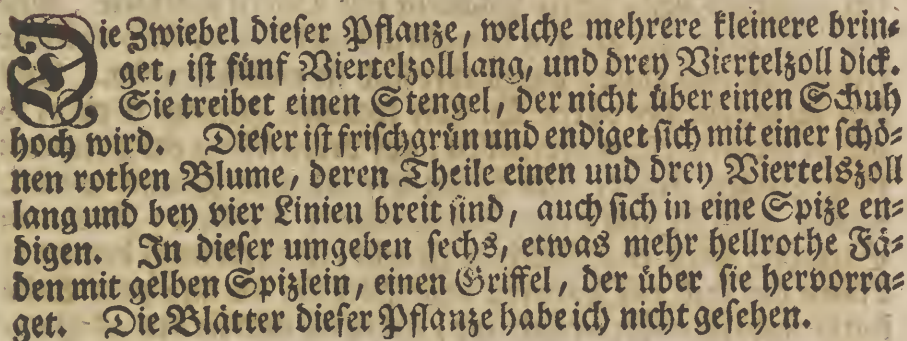 Die Zwiebel dieser Pflanze, welche mehrere kleinere brin⸗
get, ist fünf Viertelzoll lang, und drey Viertelzoll dick.
Sie treibet einen Stengel, der nicht über einen Schuh
hoch wird. Dieser ist frischgrün und endiget sich mit einer schö⸗
nen rothen Blume, deren Theile einen und drey Viertelszoll
lang und bey vier Linien breit sind, auch sich in eine Spize en⸗
digen. In dieser umgeben sechs, etwas mehr hellrothe Fä⸗
den mit gelben Spizlein, einen Griffel, der über sie hervorra⸗
get. Die Blätter dieser Pflanze habe ich nicht gesehen.